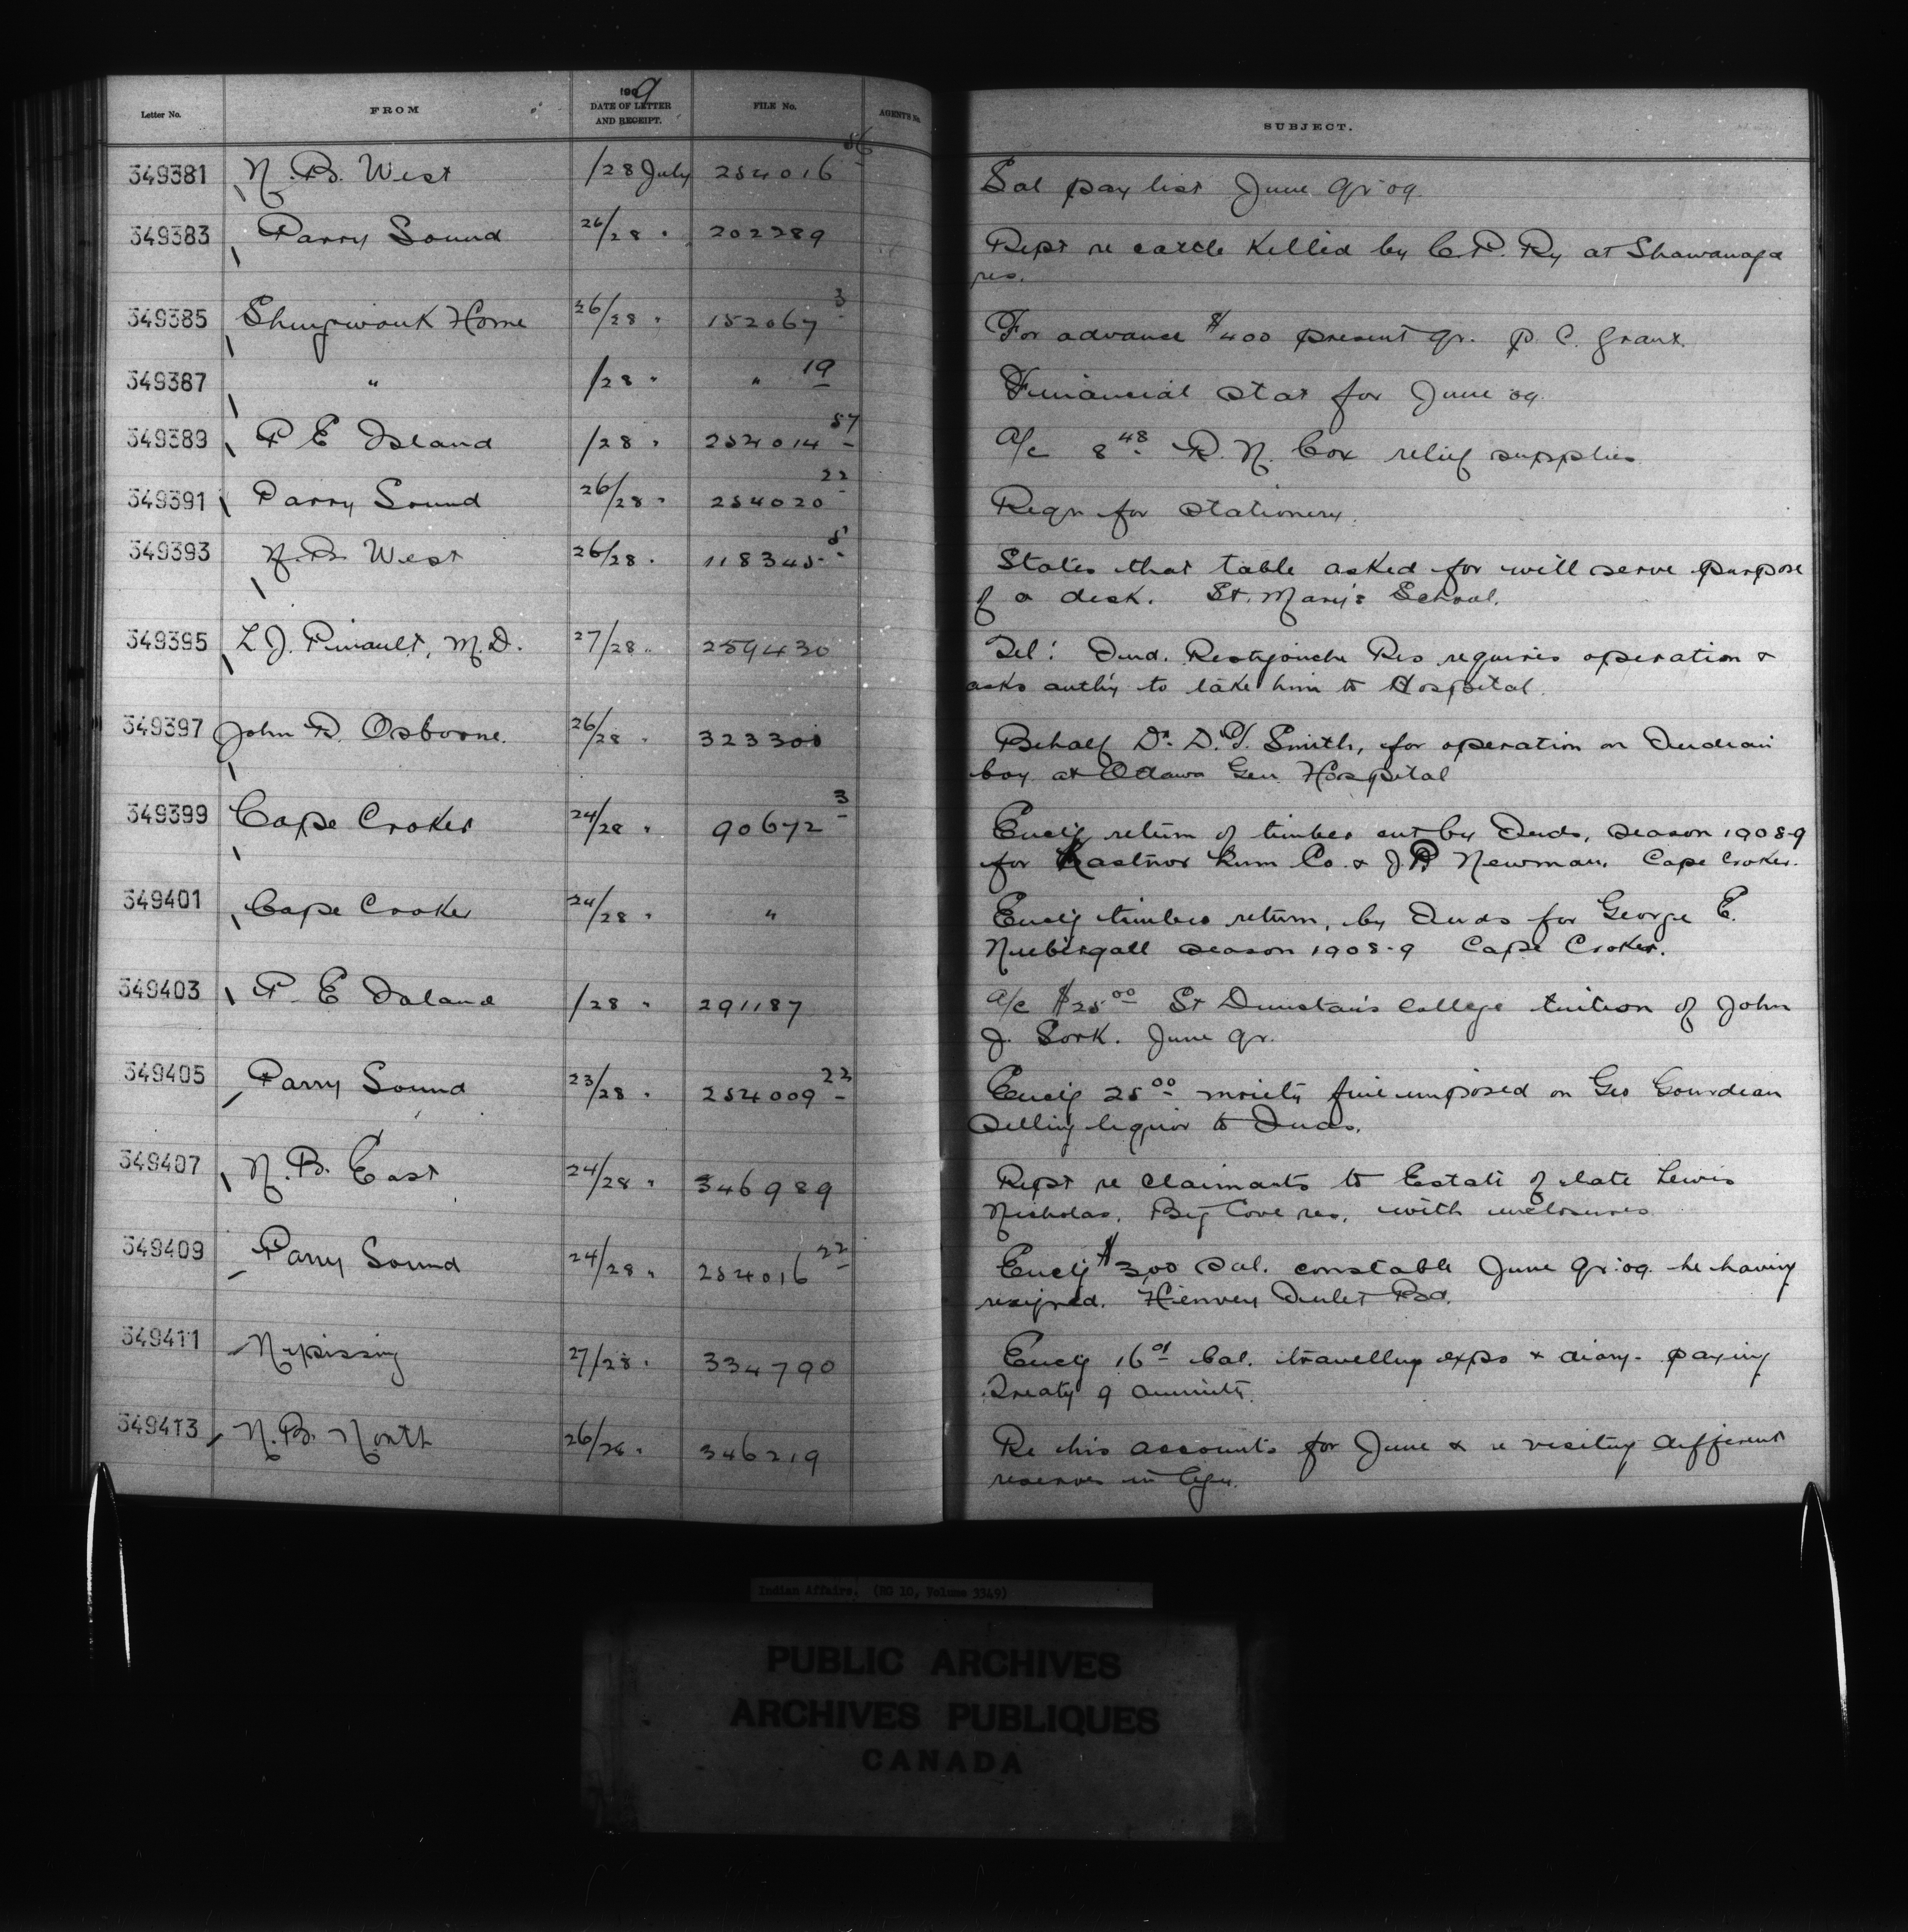 Letter No. FROM 1909 DATE OF LETTER AND RECEIPT. FILE No. AGENT'S No. SUBJECT.
349381 N. B. West /28 July 254016 56 Sal pay list June qr 09
349383 Parry Sound 26/28 " 202289 Rept re cattle killed by C. P. Ry at Shawanaga
res.
349385 Shingwauk Home 26/28 " 152067 3 For advance $400 present qr. p. c. grant.
349387 " /28 " " 19 Financial stat for June 09
349389 P E Island /28 " 254014 57 a/c 8 48 R. N. Cox relief supplies
349391 Parry Sound 26/28 " 254020 22 Reqn for stationery.
349393 N. B. West 26/28 " 118345 States that table asked for will serve purpose
of a desk. St. Mary's School.
349395 L. J. Pinault, M.D. 27/28 " 259430 Tel: Ind. Restigouche Res requires operation &
asks auth'y to take him to Hospital.
349397 John D. Osborne. 26/28 " 323300 Behalf Dr. D. Smith, for operation on Indian
boy at Ottawa Gen Hospital
349399 Cape Croker 24/28 " 90672 3 Encl'g return of timber cut by Inds, season 1908-9
for Kastner Lum Co. & J. Newman. Cape Croker.
349401 Cape Croker 24/28 " " Encl'g timber return, by Inds for George E.
season 1908-9 Cape Croker.
349403 P. E Island /28 " 291187 a/c $25 00 St Dunstan's College tuition of John
J. Sark. June qr.
349405 Parry Sound 23/28 " 254009 22 Encl'g 25 00 moiety fine imposed on Geo
selling liquor to Inds.
349407 N. B. East 24/28 " 346989 Rept re claimants to Estate of late Lewis
Nicholas, Big Cove res, with enclosures
349409 Parry Sound 24/28 " 254016 22 Encl'g $3.00 sal. constable June qr. 09. he having
resigned. Henvey Inlet Bd.
349411 Nipissing 27/28 " 334790 Encl'g 16 01 bal. travelling exps & diary - paying
Treaty 9 annuity.
349413 N. B. North 26/28 " 346219 Re his accounts for June & re visiting different
reserves in
Indian Affairs. (RG 10, Volume 3349)
PUBLIC ARCHIVES
ARCHIVES PUBLIQUES
CANADA